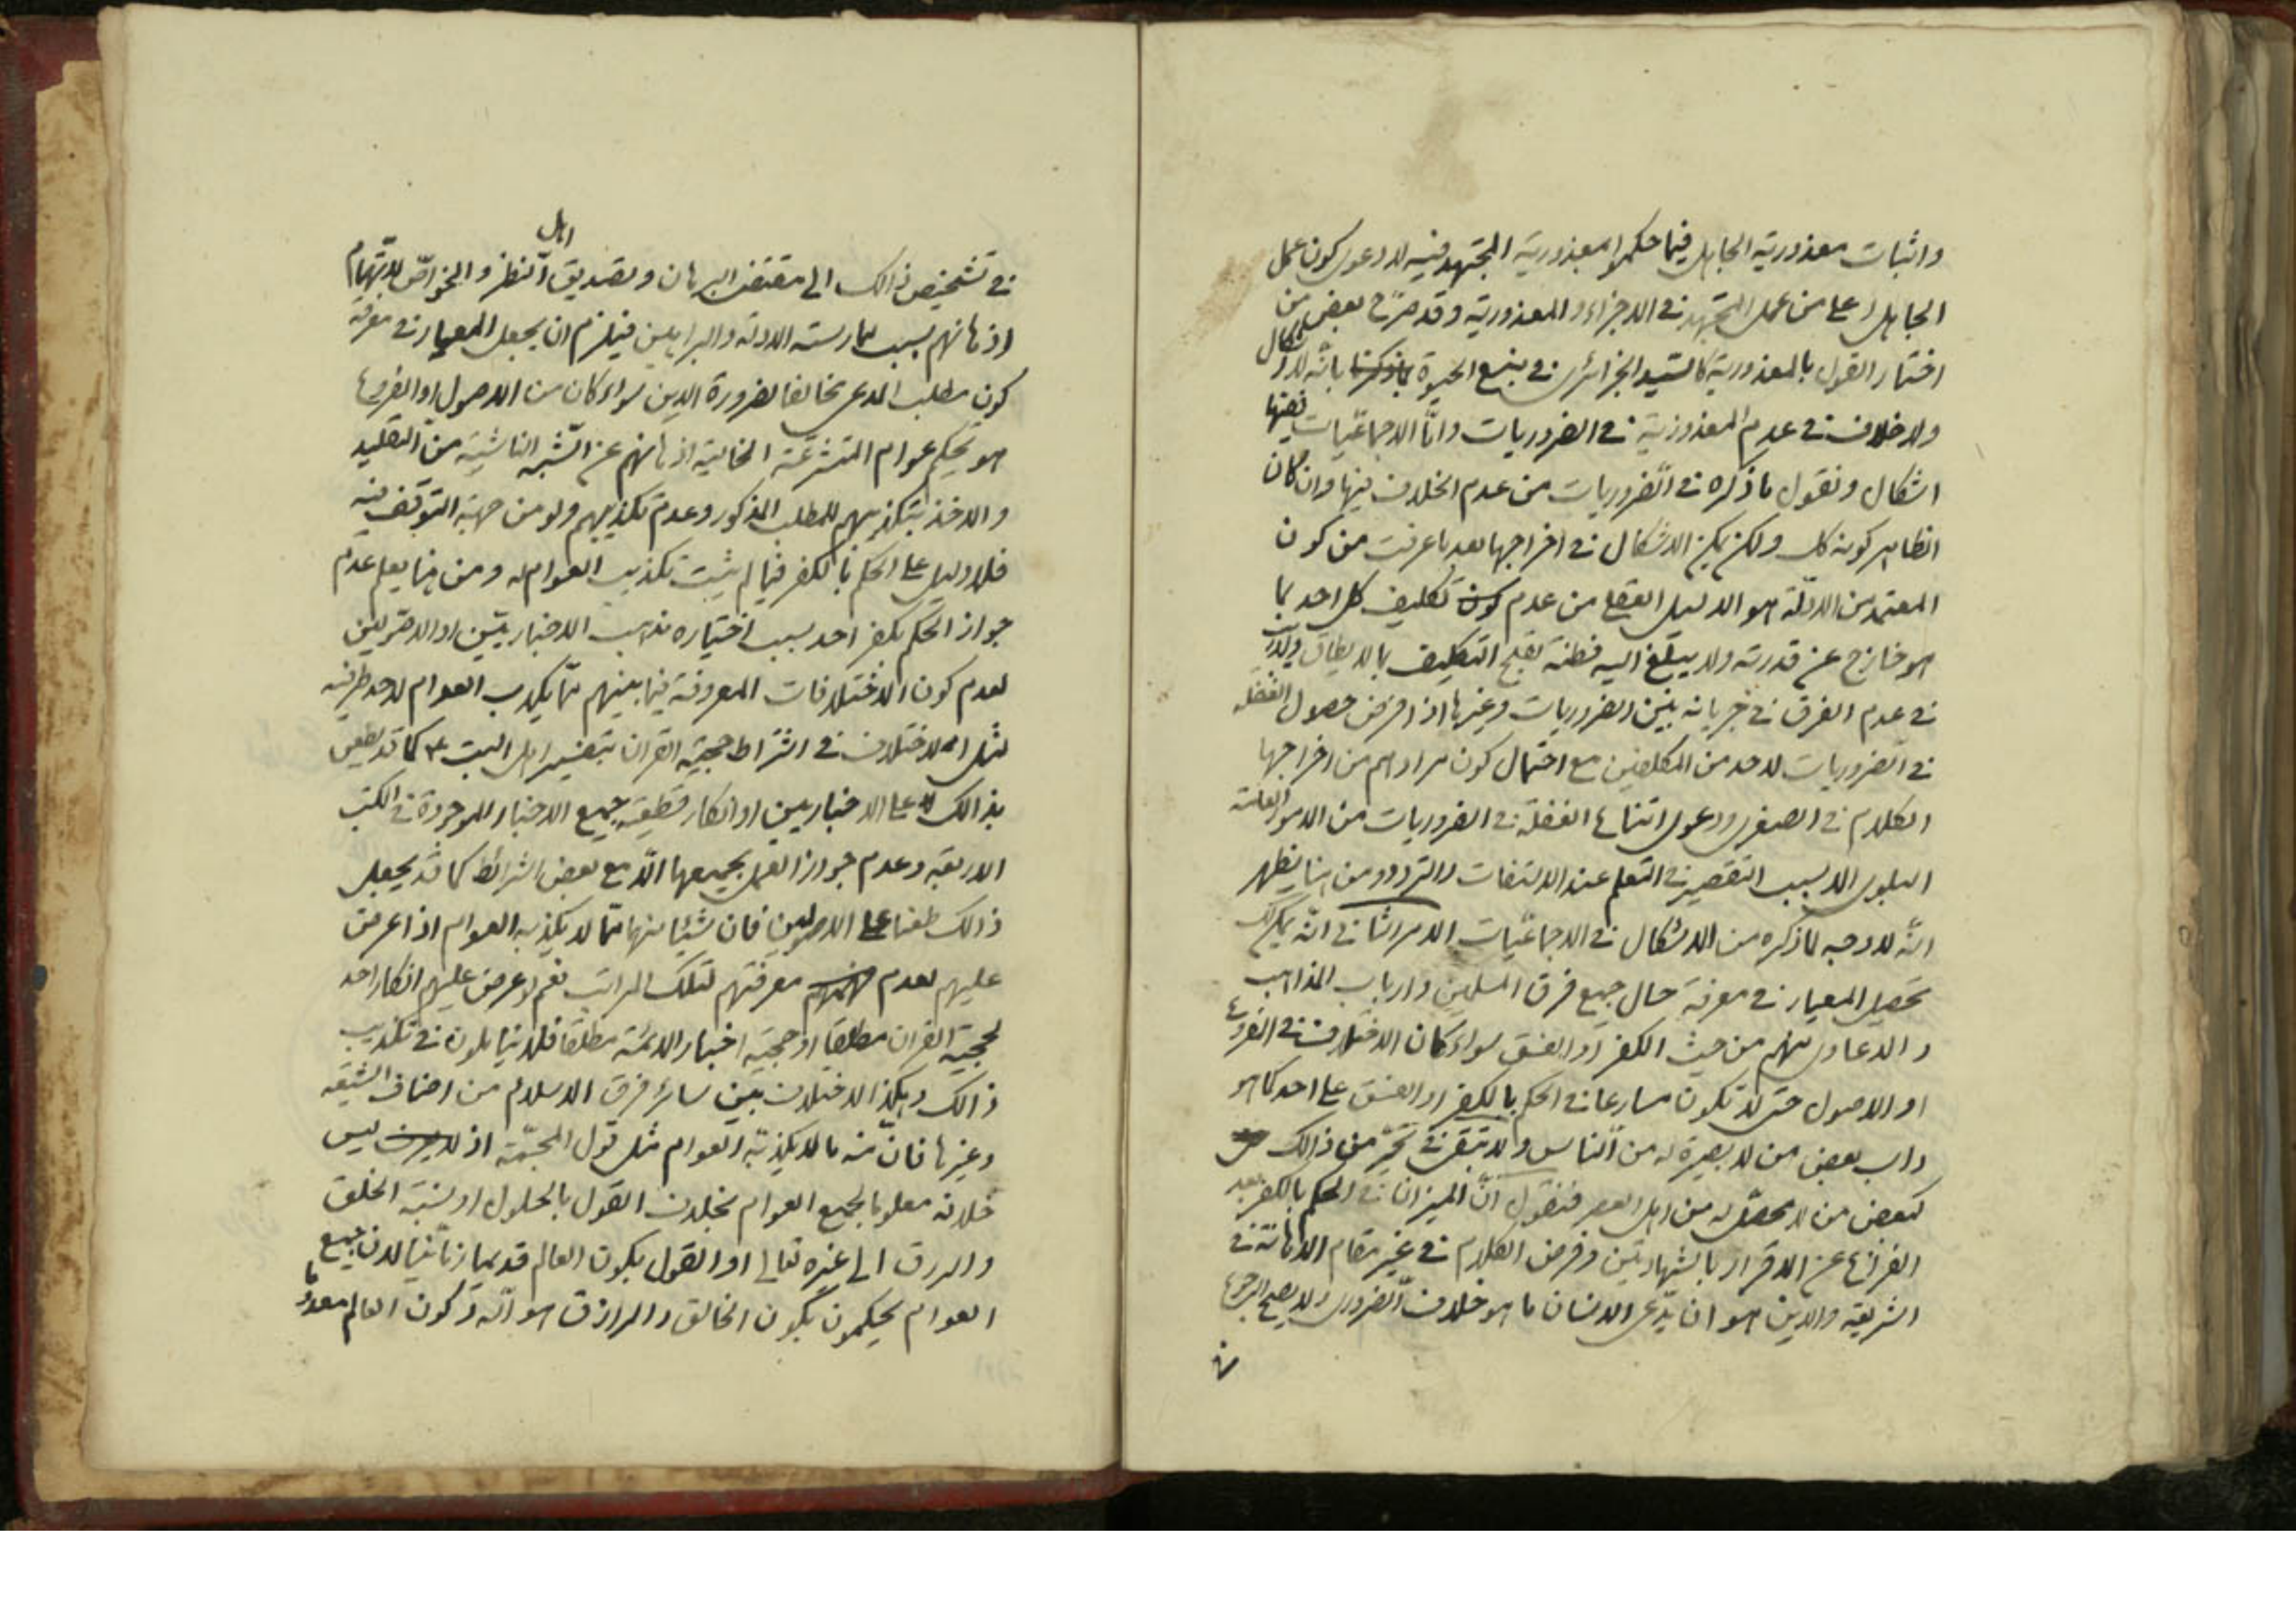 واثبات معذورية الجاهل فيما حكموا بمعذورية المجتهد فيه لا دعوى كون عمل
الجاهل اعلى من عمل المجتهد في الاجزاء والمعذورية وقد صرّح بعض من
اختار القول بالمعذورية كالسيد الجزائرى في منبع الحيوة بانّه لا اشكال
ولا خلاف في عدم المعذورية في الضروريات وامّا الاجماعيّات ففيها
اشكال ونقول ما ذكره في الضروريات من عدم الخلاف فيها وان كان
الظاهر كونه كك ولكن يمكن الاشكال في اخراجها بعد ما عرفت من كون
المعتمد من الادلّة هو الدليل العقلى من عدم تكليف كل احد بما
هو خارج عن قدرته ولا يبلغ اليه فطنته لقبح التكليف بما لا يطاق ولا ريب
في عدم الفرق في جريانه بين الضروريات وغيرها اذا فرض حصول الغفلة
في الضروريات لاحد من المكلفين مع احتمال كون مرادهم من اخراجها
الكلام في الصغرى ودعوى امتناع الغفلة في الضروريات من الامور العامّة
البلوى الا بسبب التقصير في التعلم عند الالتفات والتردد ومن هنا يظهر
انّه لا وجه لما ذكره من الاشكال في الاجماعيّات الامر الثانى انّه يمكن لك
تحصيل المعيار في معرفة حال جميع فرق المسلمين وارباب المذاهب
والدعاوى منهم من حيث الكفر او الفسق سواء كان الاختلاف في الفروع
او الاصول حتى لا تكون مسارعا في الحكم بالكفر او الفسق على احد كما هو
داب بعض من لا بصيرة له من الناس ولا تبقى في تحيّر من ذالك
كبعض من لا محصّل له من اهل العصر فنقول انّ الميزان في الحكم بالكفر بعد
الفراغ عن الاقرار بالشهادتين وفرض الكلام في غير مقام الاهانة في
الشريعة والدين هو ان يدّعى الانسان ما هو خلاف الضرورى ولا يصح الرجوع
في
اهل
في تشخيص ذالك الى مقتضى البرهان وتصديق النظر والخواصّ لاتّهام
اذهانهم بسبب ممارسته الادلة والبراهين فيلزم ان يجعل المعيار في معرفة
كون مطلب المدعى مخالفا لضرورة الدين سواء كان من الاصول او الفروع
هو تحكيم عوام المتشرعة الخالية اذهانهم عن الشبه الناشية من التقليد
والاخذ بتكذيبهم للمطلب المذكور وعدم تكذيبهم ولو من جهة التوقف فيه
فلا دليل على الحكم بالكفر فيما لم يثبت تكذيب العوام له ومن هنا يعلم عدم
جواز الحكم بكفر احد بسبب اختياره مذهب الاخباريّين او الاصوليين
لعدم كون الاختلافات المعروفة فيما بينهم ممّا يكذب العوام لاحد طرفيه
مثل الاختلاف في اشتراط حجية القران بتفسير اهل البيت ع كما قد يطعن
بذالك على الاخباريين او انكار قطعية جميع الاخبار الموجودة في الكتب
الاربعة وعدم جواز العمل بجميعها الّا مع بعض الشرائط كما قد يجعل
ذالك طعنا على الاصوليين فان شيئا منها ممّا لا يكذبه العوام اذا عرض
عليهم لعدم معرفتهم لتلك المراتب نعم لو عرض عليهم انكار احد
لحجية القران مطلقا او حجية اخبار الائمة مطلقا فلا يتاملون في تكذيب
ذالك وهكذا الاختلاف بين سائر فرق الاسلام من اصناف الشيعة
وغيرها فانّ منه ما لا يكذبه العوام مثل قول المجسّمة اذ ليس
خلافه معلوما لجميع العوام بخلاف القول بالحلول او نسبة الخلق
والرزق الى غيره تعالى او القول بكون العالم قديما زمانيا لان جميع
العوام يحكمون بكون الخالق والرازق هو الله وكون العالم معدوما